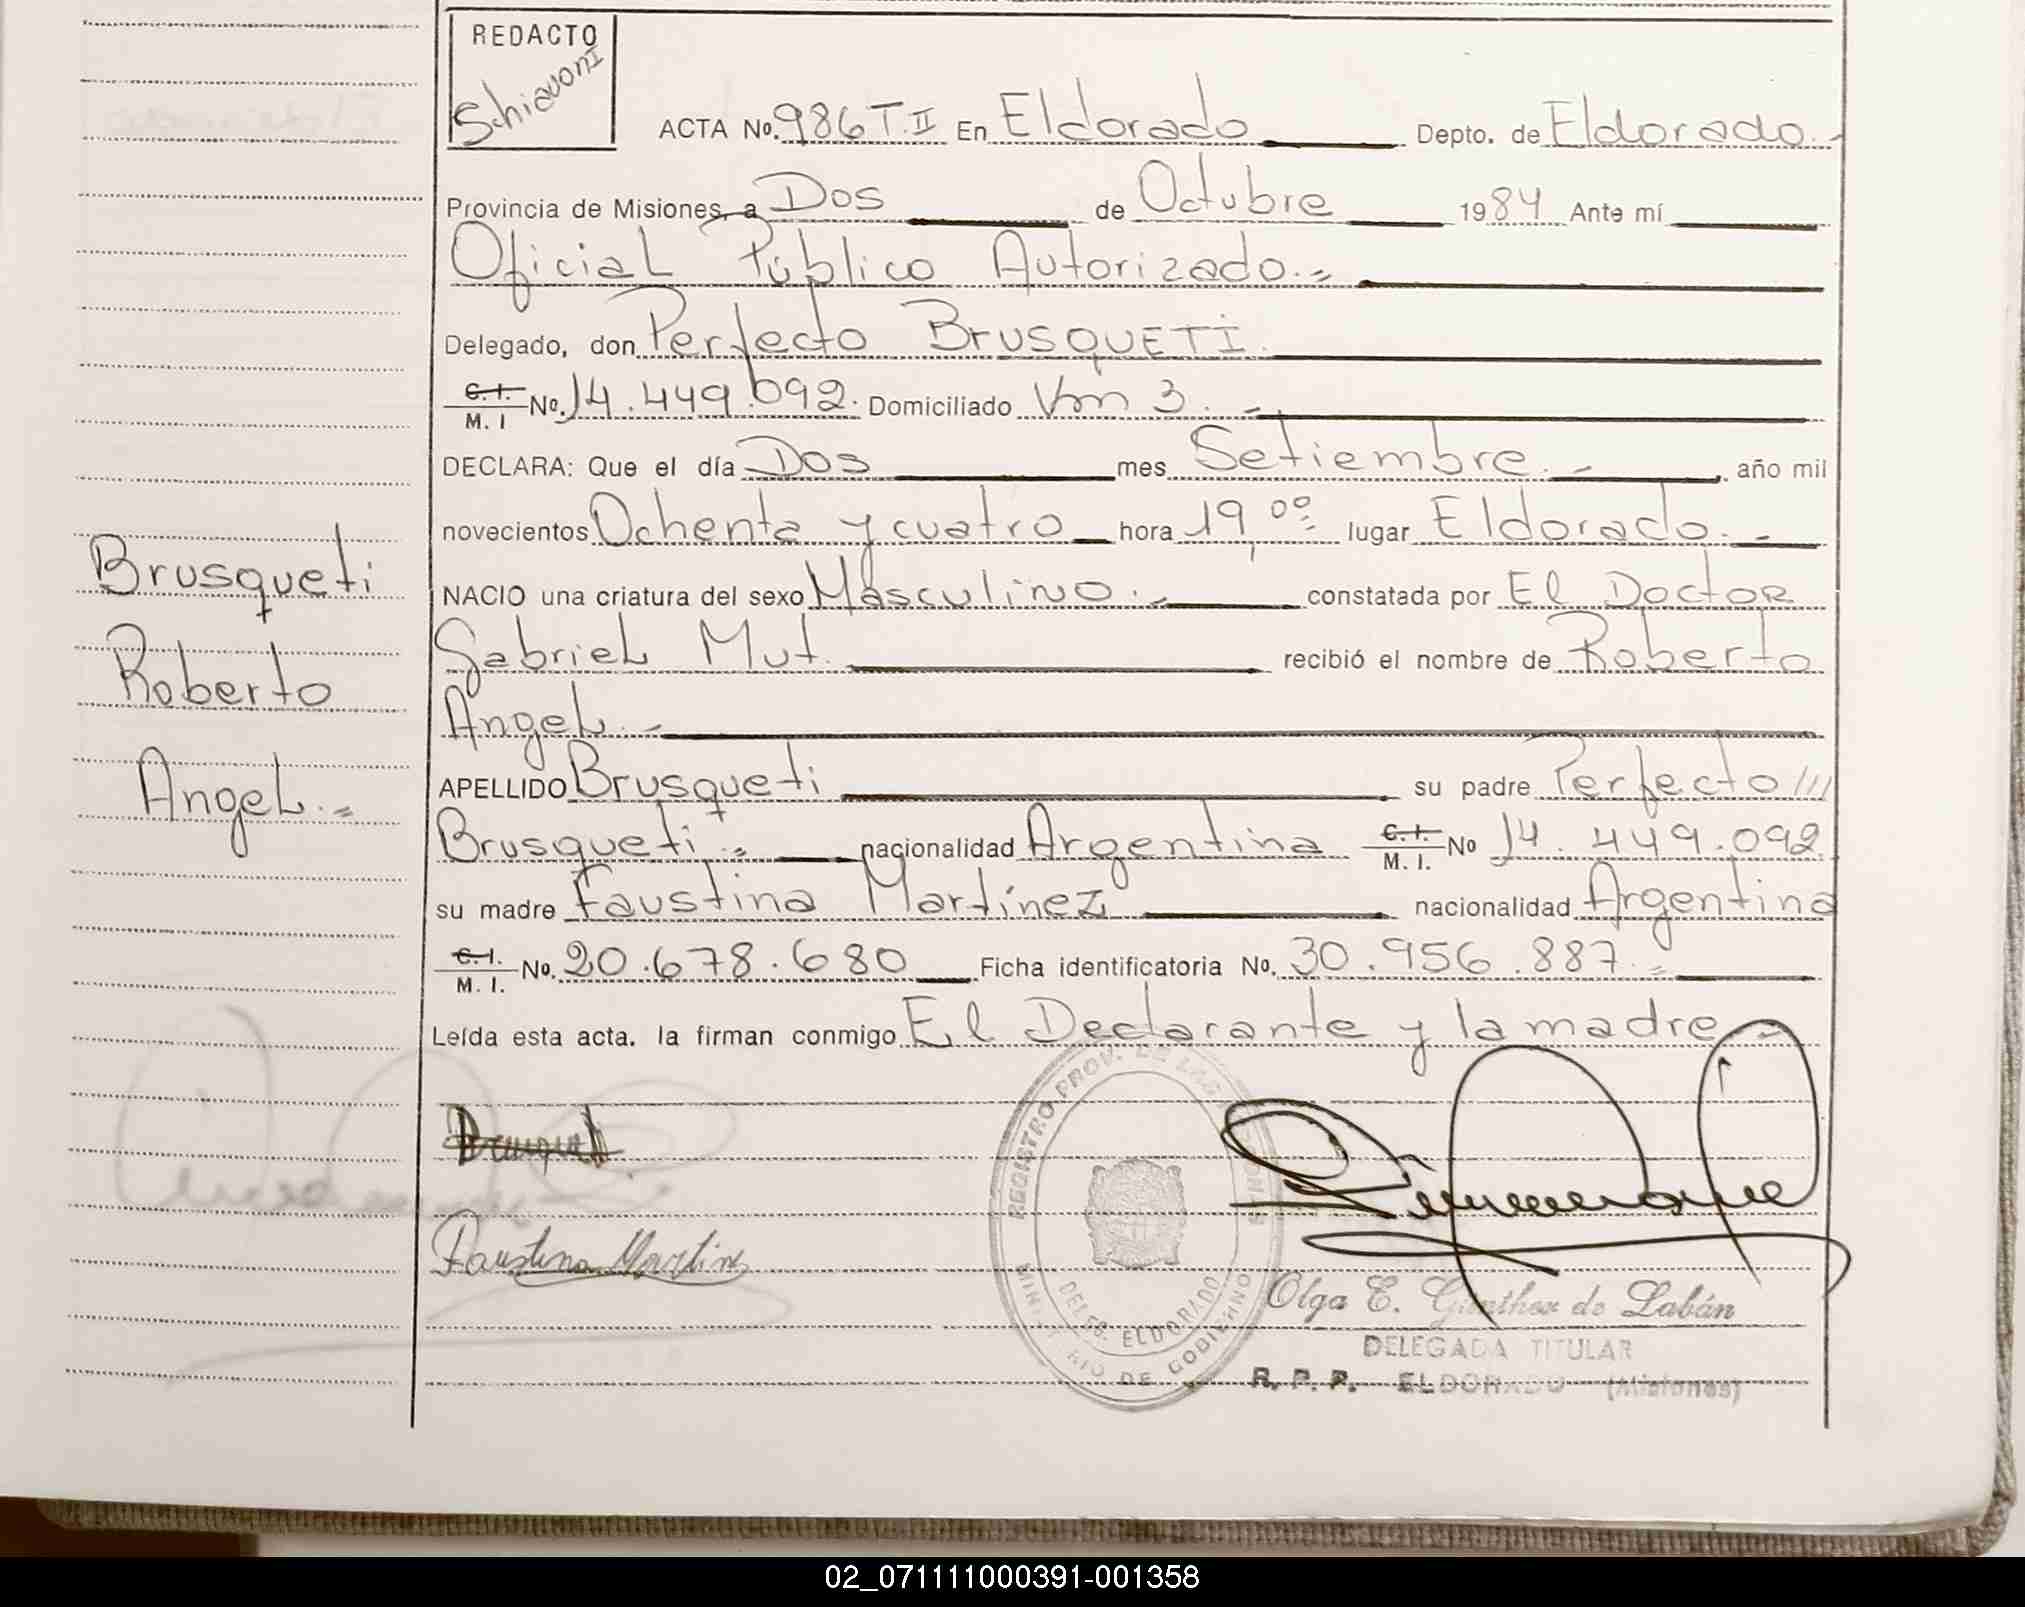 REDACTO
Schiavoni
ACTA No. 986 T. II En Eldorado Depto. de Eldorado.-
Provincia de Misiones, a Dos de Octubre 1984 Ante mí
Oficial Público Autorizado.=
Delegado, don Perfecto BRUSQUETI.
C. I. / M. I No. 14.449.092. Domiciliado Km 3. -
DECLARA: Que el día Dos mes Setiembre. - , año mil
novecientos Ochenta y cuatro hora 19,00 lugar Eldorado. -
NACIO una criatura del sexo Masculino. - constatada por El Doctor
Gabriel Mut. recibió el nombre de Roberto
Angel. -
APELLIDO Brusqueti su padre Perfecto ///
Brusqueti.= nacionalidad Argentina C. I. / M. I. No 14.449.092
su madre Faustina Martínez nacionalidad Argentina
C. I. / M. I. No. 20.678.680 Ficha identificatoria No. 30.956.887.=
Leída esta acta. la firman conmigo El Declarante y la madre -
Brusqueti
Roberto
Angel.=
Faustina Martinz
REGISTRO PROV. DE LAS PERSONAS
MINISTERIO DE GOBIERNO
DELEG. ELDORADO
Olga E. Günther de Labán
DELEGADA TITULAR
R. P. P. ELDORADO (Misiones)
02_071111000391-001358